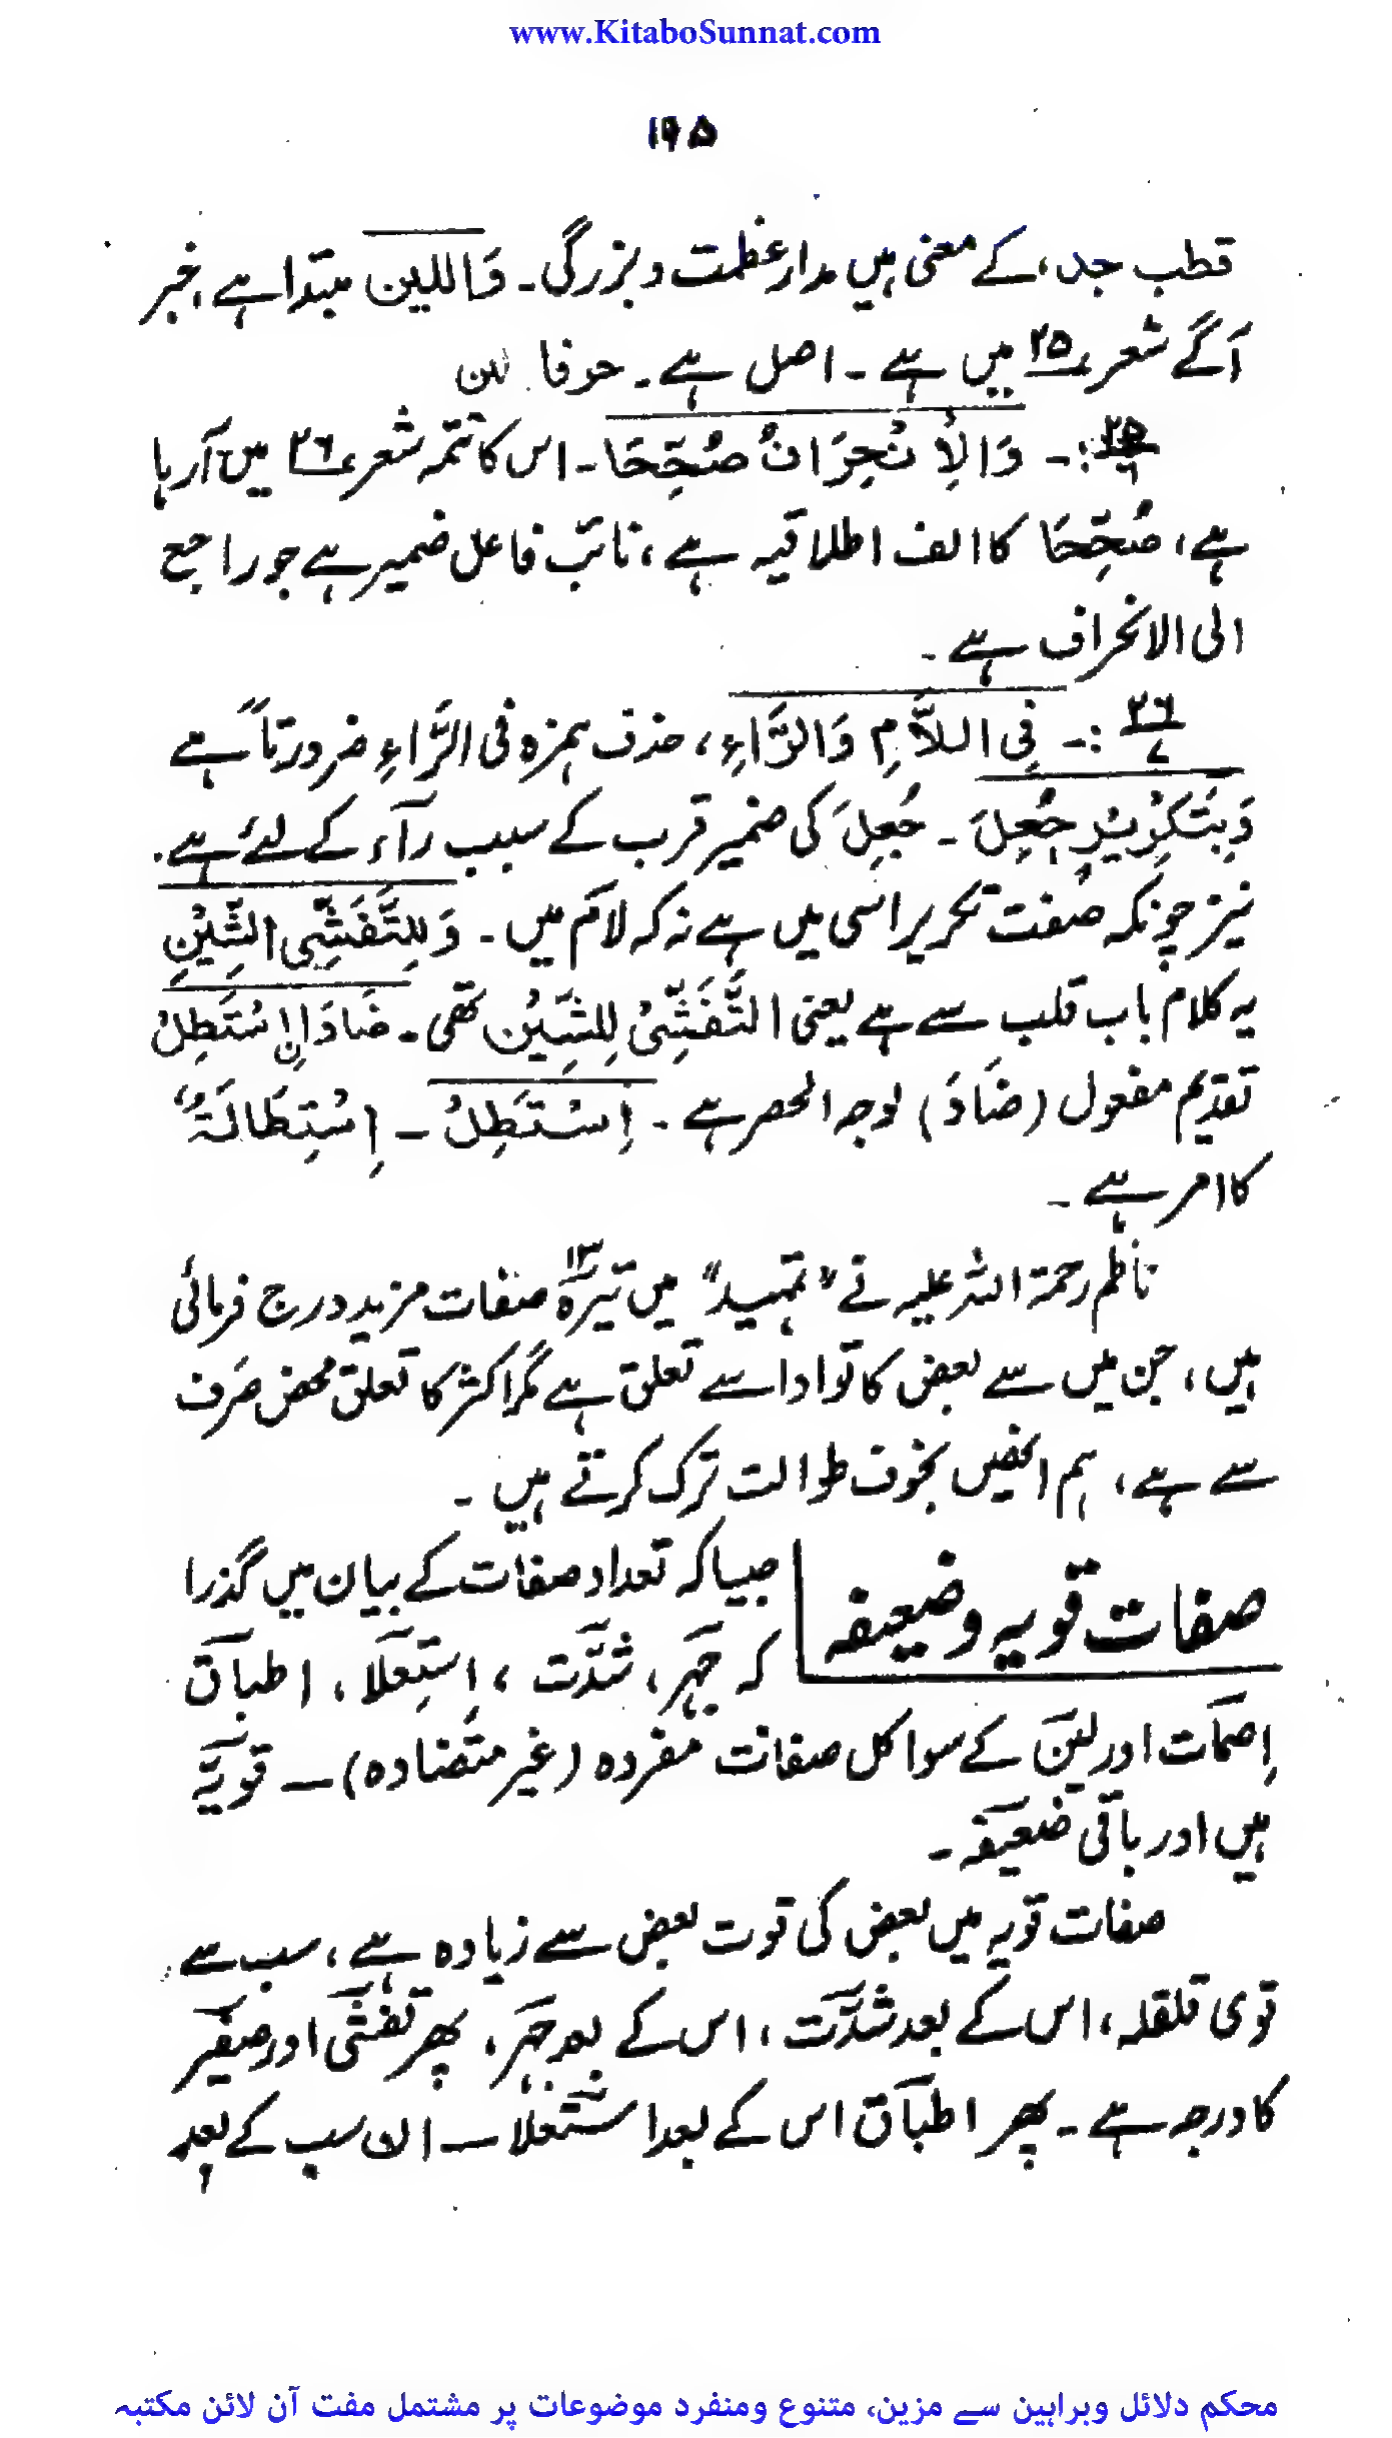 www.KitaboSunnat.com
۱۹۵
قطب جد، کے معنی ہیں مدار عظمت و بزرگی۔ وَاللین مبتدا ہے، خبر
آگے شعر ۲۵ میں ہے ۔ اصل ہے۔ حرفا لین
۲۵ :۔ وَالِانْحِرَافُ صُحِّحَا ۔ اس کا تتمہ شعر ۲۶ میں آرہا
ہے، صُحِّحَا کا الف اطلاقیہ ہے، نائب فاعل ضمیر ہے جو راجع
الی الانحراف ہے ۔
۲۶ :۔ فِی اللَّامِ وَالرَّاءِ، حذف ہمزہ فی الرَّاءِ ضرورتاً ہے
وَبِتَكْرِيْرٍ جُعِلَ ۔ جُعِلَ کی ضمیر قرب کے سبب رآء کے لئے ہے۔
نیز چونکہ صفت تکریر اسی میں ہے نہ کہ لام میں ۔ وَلِلتَّفَشِّی الشِّيْنِ
یہ کلام باب قلب سے ہے یعنی التَّفَشِّیْ لِلشِّيْنِ تھی ۔ ضَادَانِ اسْتَطِلْ
تقدیم مفعول (ضَادَ) لوجہ الحصر ہے ۔ اِسْتَطِلْ ۔ اِسْتِطَالَۃٌ
کا امر ہے ۔
ناظم رحمۃ اللہ علیہ نے "تمہید" میں تیرہ ۱۳ صفات مزید درج فرمائی
ہیں، جن میں سے بعض کا تو ادا سے تعلق ہے مگر اکثر کا تعلق محض صَرف
سے ہے، ہم انھیں بخوف طوالت ترک کرتے ہیں ۔
صفات قویہ و ضعیفہ
جیسا کہ تعداد صفات کے بیان میں گذرا
کہ جہر، شدّت ، اِستِعلا، اطباق
اِصمات اور لین کے سوا کل صفات مفردہ (غیر متضادہ) ــ قویّہ
ہیں اور باقی ضعیفہ ۔
صفات قویہ میں بعض کی قوت بعض سے زیادہ ہے، سب سے
قوی قلقلہ، اس کے بعد شدّت ، اس کے بعد جہر، پھر تفشّی اور صفیر
کا درجہ ہے ۔ پھر اطباق اس کے بعد استعلا ــ ان سب کے بعد
محکم دلائل وبراہین سے مزین، متنوع ومنفرد موضوعات پر مشتمل مفت آن لائن مکتبہ